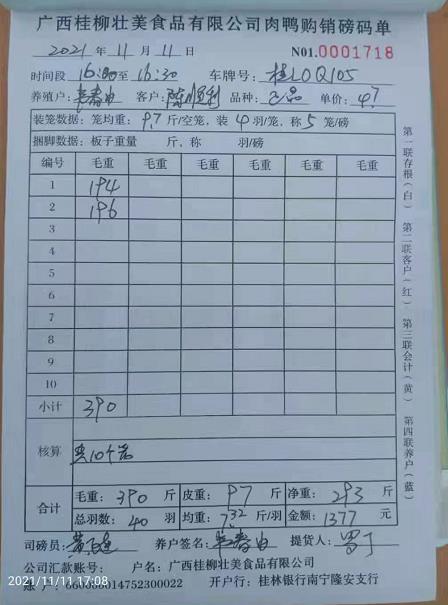 广西桂柳壮美食品有限公司肉鸭购销磅码单
2021 年 11 月 11 日 N01.0001718
时间段 16:00 至 16:30 车牌号: 桂L0Q105
养殖户: 客户: 陈顺利 品种: 正品 单价: 4.7
装笼数据: 笼均重: 9.7 斤/空笼, 装 4 羽/笼, 称 5 笼/磅
捆脚数据: 板子重量 斤, 称 羽/磅
编号 毛重 毛重 毛重 毛重 毛重 毛重
1 194
2 196
3
4
5
6
7
8
9
10
小计 390
核算 共10个笼
合计 毛重: 390 斤 皮重: 97 斤 净重: 293 斤
总羽数: 40 羽 均重: 7.32 斤/羽 金额: 1377 元
司磅员: 养户签名: 提货人:
公司汇款账号: 户名: 广西桂柳壮美食品有限公司
账户: 660000014752300022 开户行: 桂林银行南宁隆安支行
第一联存根(白) 第二联客户(红) 第三联会计(黄) 第四联养户(蓝)
2021/11/11 17:08